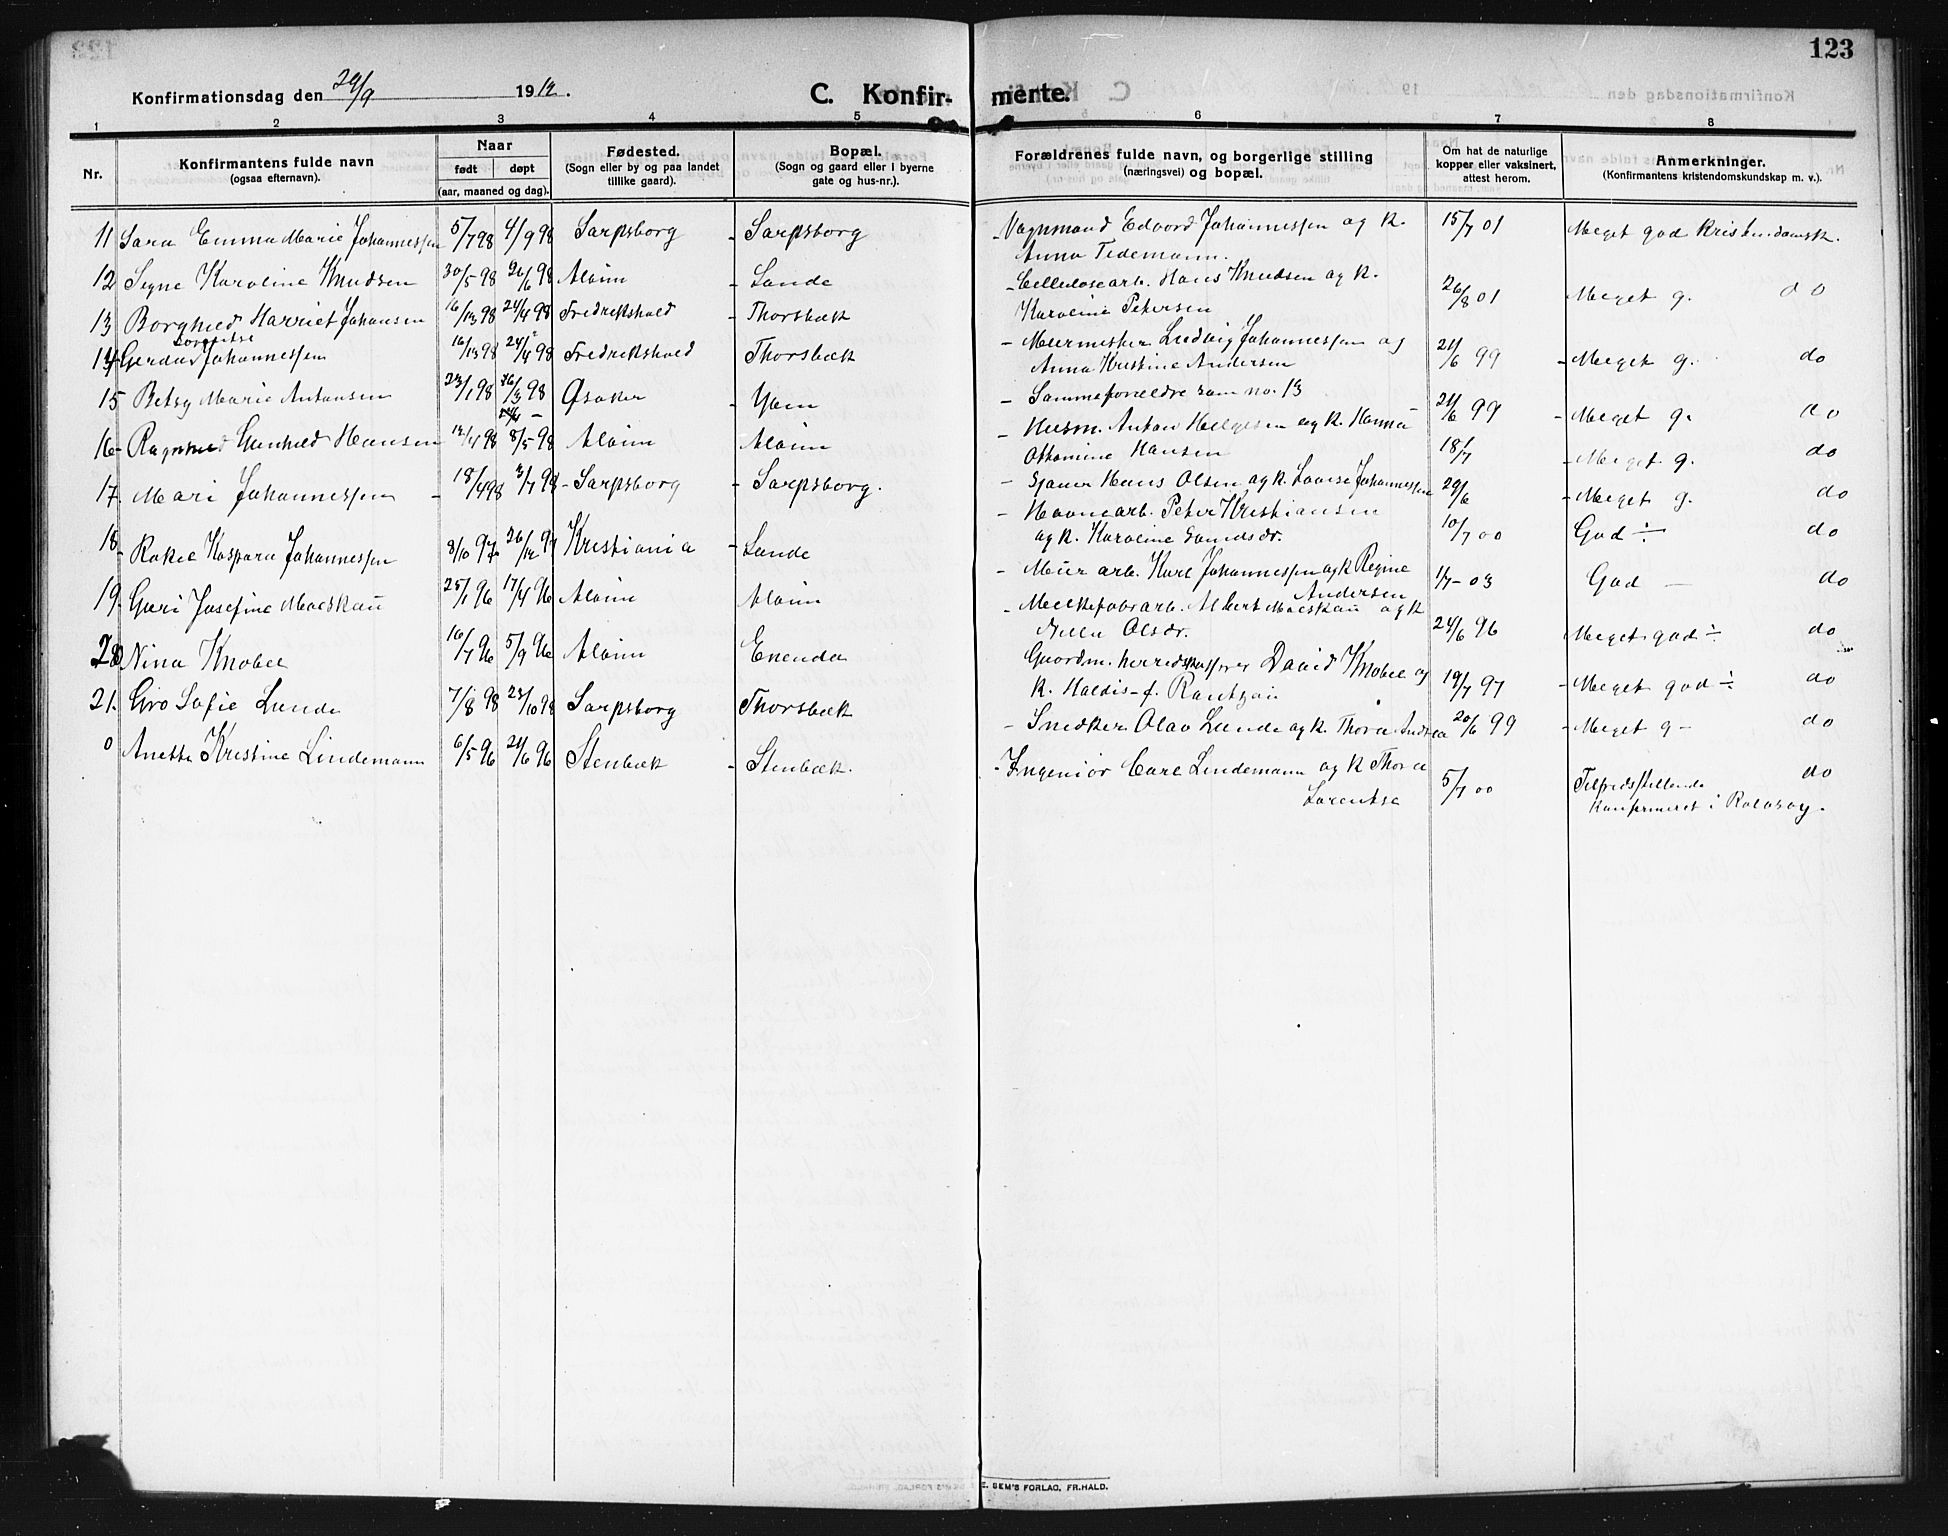 123
Konfirmationsdag den 29/9 1912.
C. Konfir- merte.
1 2 3 4 5 6 7 8
Nr. Konfirmantens fulde navn (ogsaa efternavn). Naar født døpt (aar, maaned og dag). Fødested. (Sogn eller by og paa landet tillike gaard). Bopæl. (Sogn og gaard eller i byerne gate og hus-nr.). Forældrenes fulde navn, og borgerlige stilling (næringsvei) og bopæl. Om hat de naturlige kopper eller vaksinert, attest herom. Anmerkninger. (Konfirmantens kristendomskundskap m. v.).
11 Sara Emma Marie Johannessen 5/7 98 4/9 98 Sarpsborg - Sarpsborg - Vognmand Edvard Johannessen og k. 15/7 01 Meget god Kristendomsk.
Anna Tidemann.
12 Signe Karoline Knudsen 30/5 98 26/6 98 Alvim - Sande - Cellulosearb. Hans Knudsen og k. 26/8 01 Meget g. do
Karoline Petersen
13 Borghild Harriet Johansen 16/ 98 24/4 98 Fredrikshald - Thorsbæk - Murmester Ludvig Johannessen og 21/6 99 - Meget g. do
Anna Kristine Andersen
14 Gerda Lovovise Johannessen 16/ 98 24/4 98 Fredrikshald Thorsbæk - Samme forældre som no. 13 21/6 99 - Meget g. do
15 Betsy Marie Antonsen 23/1 98 16/3 98 Øsaker - Yven - Husm. Anton Helgesen og k. Hanna 18/7 - Meget g. do
Othomine Hansen
16 - Ragnhild Gunhild Hansen 12/4 98 8/5 98 Alvim Alvim - Sjauer Hans Olsen og k. Lovise Johannessen 29/6 - Meget g. do
17. Mari Johannessen - 18/4 98 3/7 98 - Sarpsborg - Sarpsborg. - Havnearb. Peter Kristiansen 10/7 00 God ÷ do
og k. Karoline Gundsdr.
18 - Rakel Kaspara Johannessen 8/10 97 26/12 97 Kristiania - Sande - Murarb. Karl Johannessen og k Regine 1/7 - 03 God — do
Andersen
19. Guri Josefine Moeskau 25/1 96 17/4 96 Alvim Alvim - Melkefabr.arb. Albert Moeskau og k 24/6 96 Meget god ÷ do
Olsdr.
20 Nina Knobel 16/7 96 5/9 96 Alvim Enenda Gaardm. herredskasserer David Knobel og 19/7 97 - Meget god ÷ do
k. Haldis f. Rantzau
21. Gro Sofie Lunde 7/8 98 23/10 98 Sarpsborg Thorsbæk - Snedker Olav Lunde og k. Thora Andrea 20/6 99 - Meget g - do
0 Anetta Kristine Lindemann 6/5 96 21/6 96 Stenbæk - Stenbæk. - Ingeniør Carl Lindemann og k Thora 5/7 00 Tilfredsstillende do
Larentse konfirmeret i Rolvsøy.
E. SEM'S FORLAG, FR.HALD.